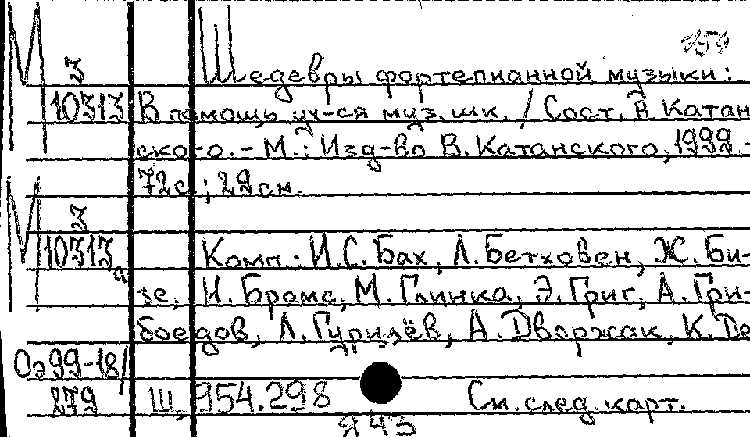 М З
10313
Шедевры фортепианной музыки:
В помощь уч-ся муз. шк. / Сост. В Катан
ского. - М.: Изд-во В. Катанского, 1999. -
72с.; 29см.
М З
10313а
Комп.: И.С. Бах, Л. Бетховен, Ж. Би-
зе, И. Брамс, М. Глинка, Э. Григ, А. Гри-
боедов, Л. Гурилёв, А. Дворжак, К. Де
Оэ 99-18/
279
Ш, 954.298
См. след. карт.
Я 43